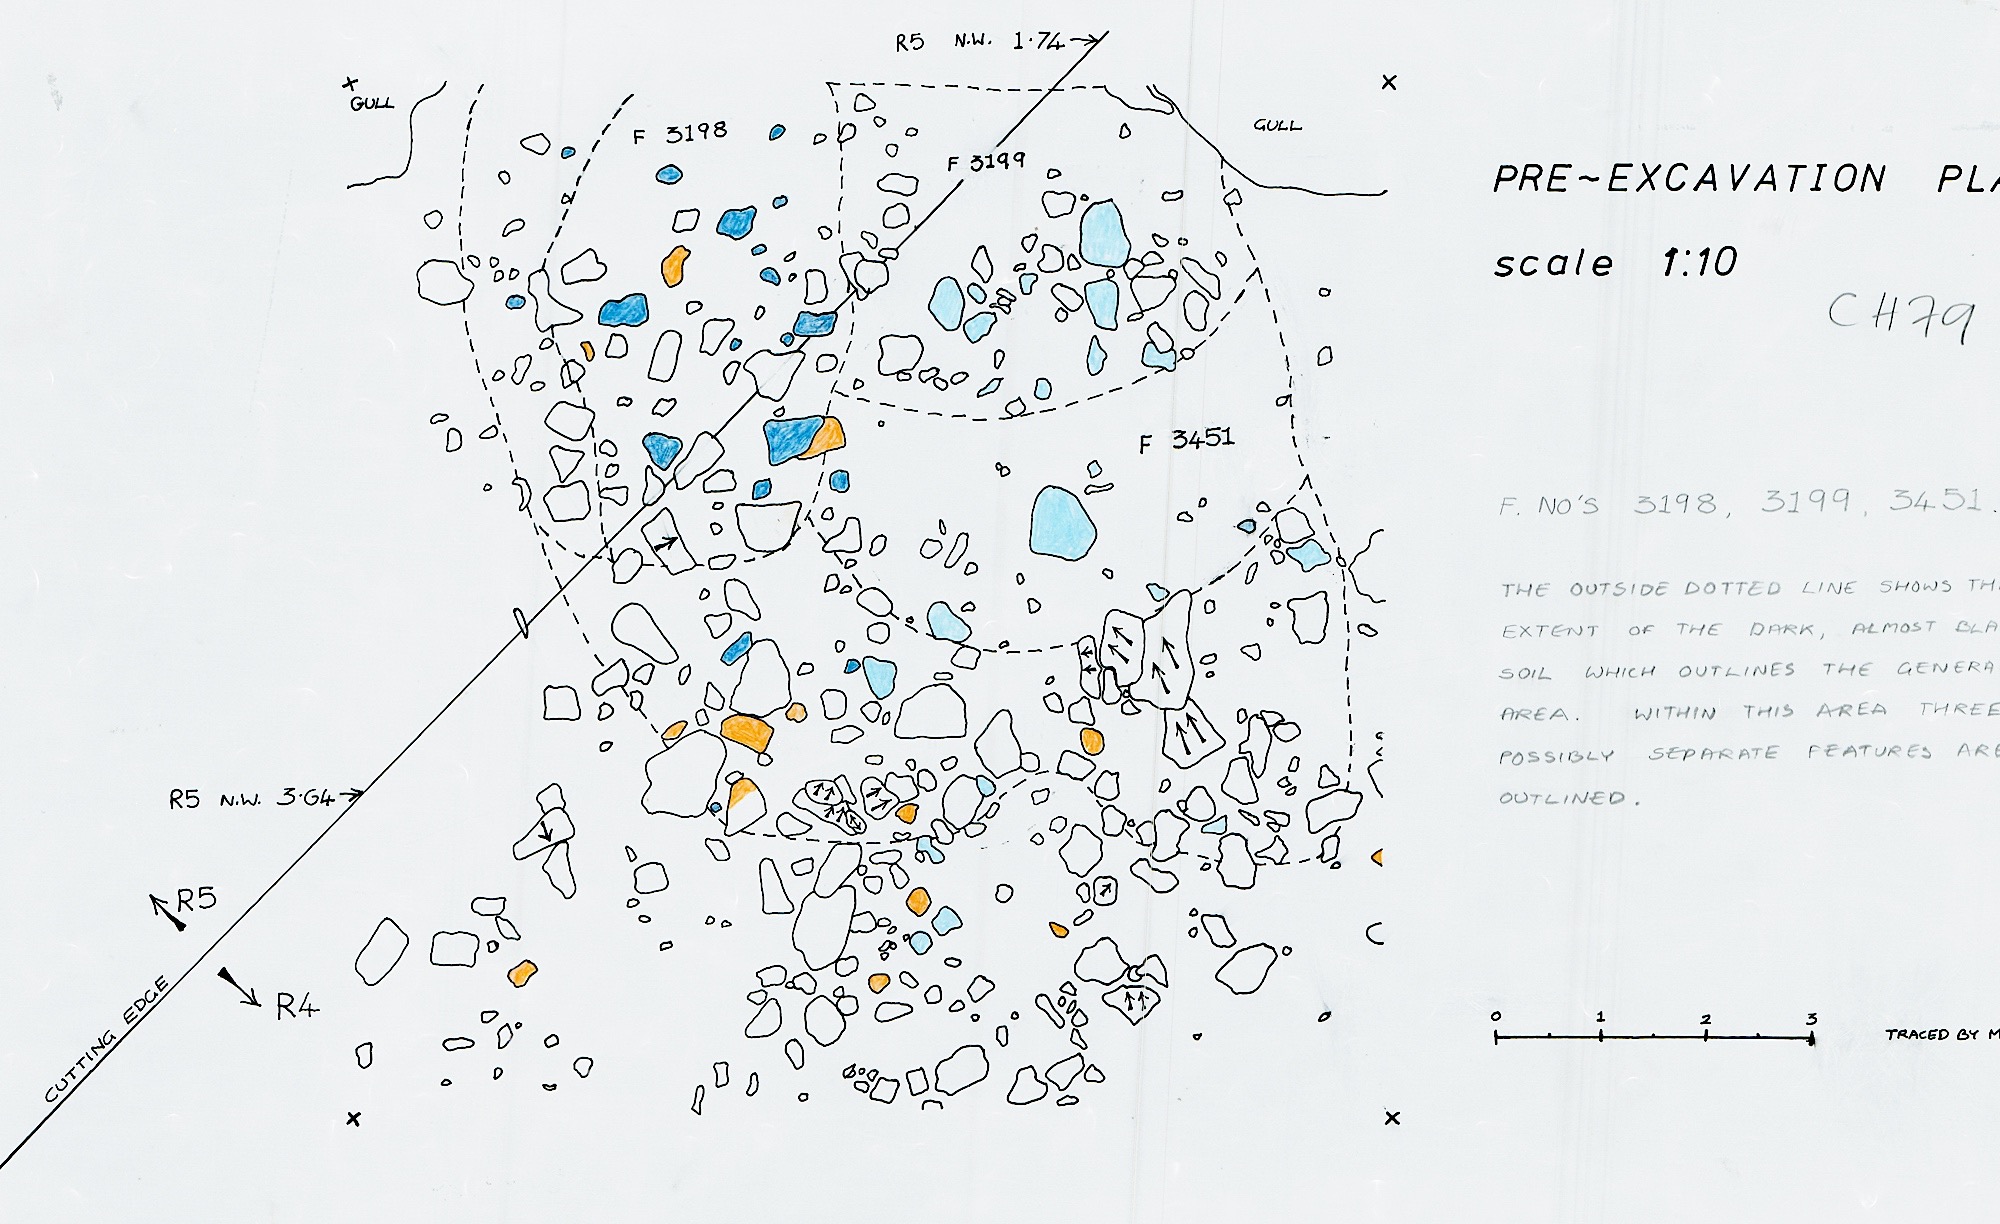 R5 N.W. 1·74
GULL
F 3198
F 3199
GULL
F 3451
R5 N.W. 3·64
R5
R4
CUTTING EDGE
PRE~EXCAVATION PLA
scale 1:10
CH79
F. NO'S 3198, 3199, 3451.
THE OUTSIDE DOTTED LINE SHOWS TH
EXTENT OF THE DARK, ALMOST BLA
SOIL WHICH OUTLINES THE GENERA
AREA. WITHIN THIS AREA THREE
POSSIBLY SEPARATE FEATURES ARE
OUTLINED.
0 1 2 3
TRACED BY M